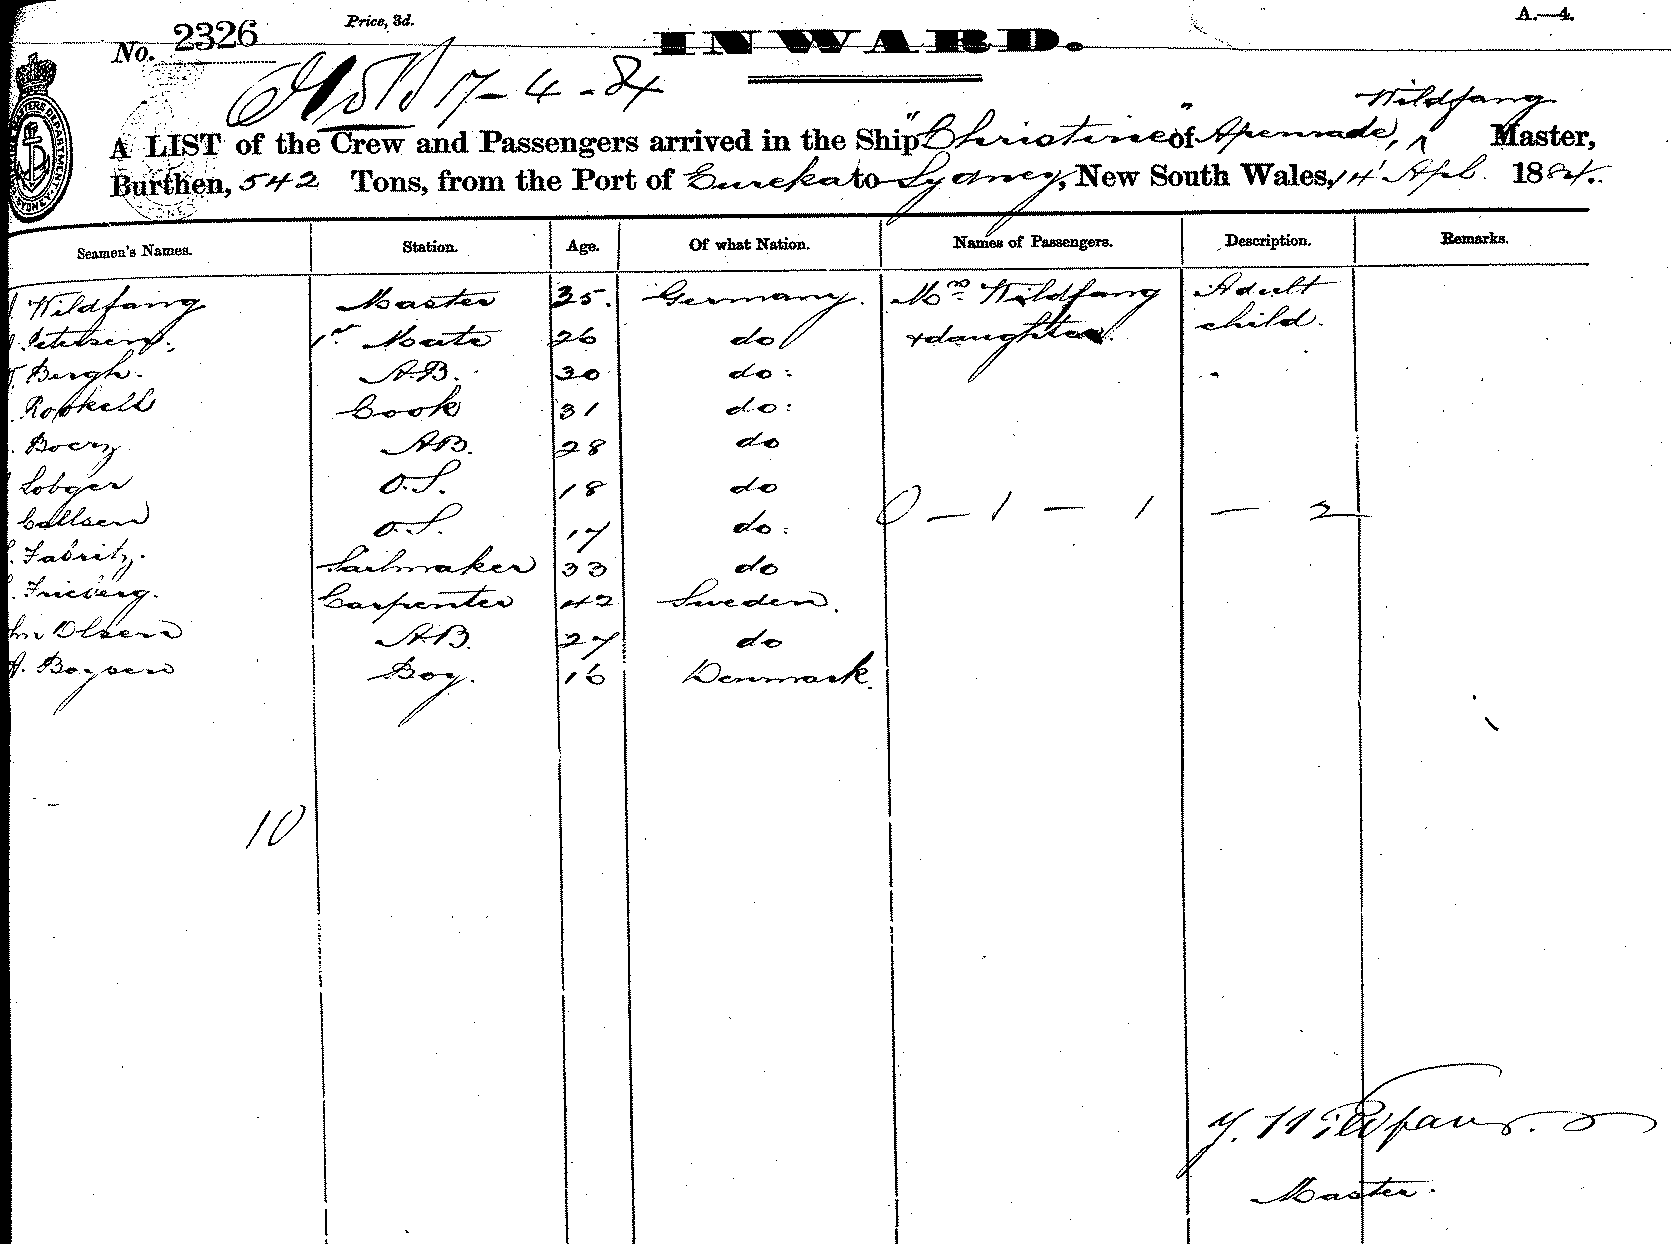 Price, 3d.
A.—4.
No. 2326
INWARD.
17-4-84
Wildfang
A LIST of the Crew and Passengers arrived in the Ship "Christine" of Apenrade, Master,
Burthen, 542 Tons, from the Port of Eureka to Sydney, New South Wales, 14 Apl. 1884.
Seamen's Names. Station. Age. Of what Nation. Names of Passengers. Description. Remarks.
Wildfang Master 35. Germany. Mrs Wildfang Adult
Petersen 1st Mate 26 do & daughter child.
Bergh. A.B. 30 do:
Cook 31 do:
A.B. 28 do
O.S. 18 do 0 — 1 — 1 — 2
Callsen O.S. 17 do:
Fabritz. Sailmaker 33 do
Frieberg. Carpenter 42 Sweden.
Olsen A.B. 27 do
Boysen Boy. 16 Denmark.
10
Wildfang.
Master.